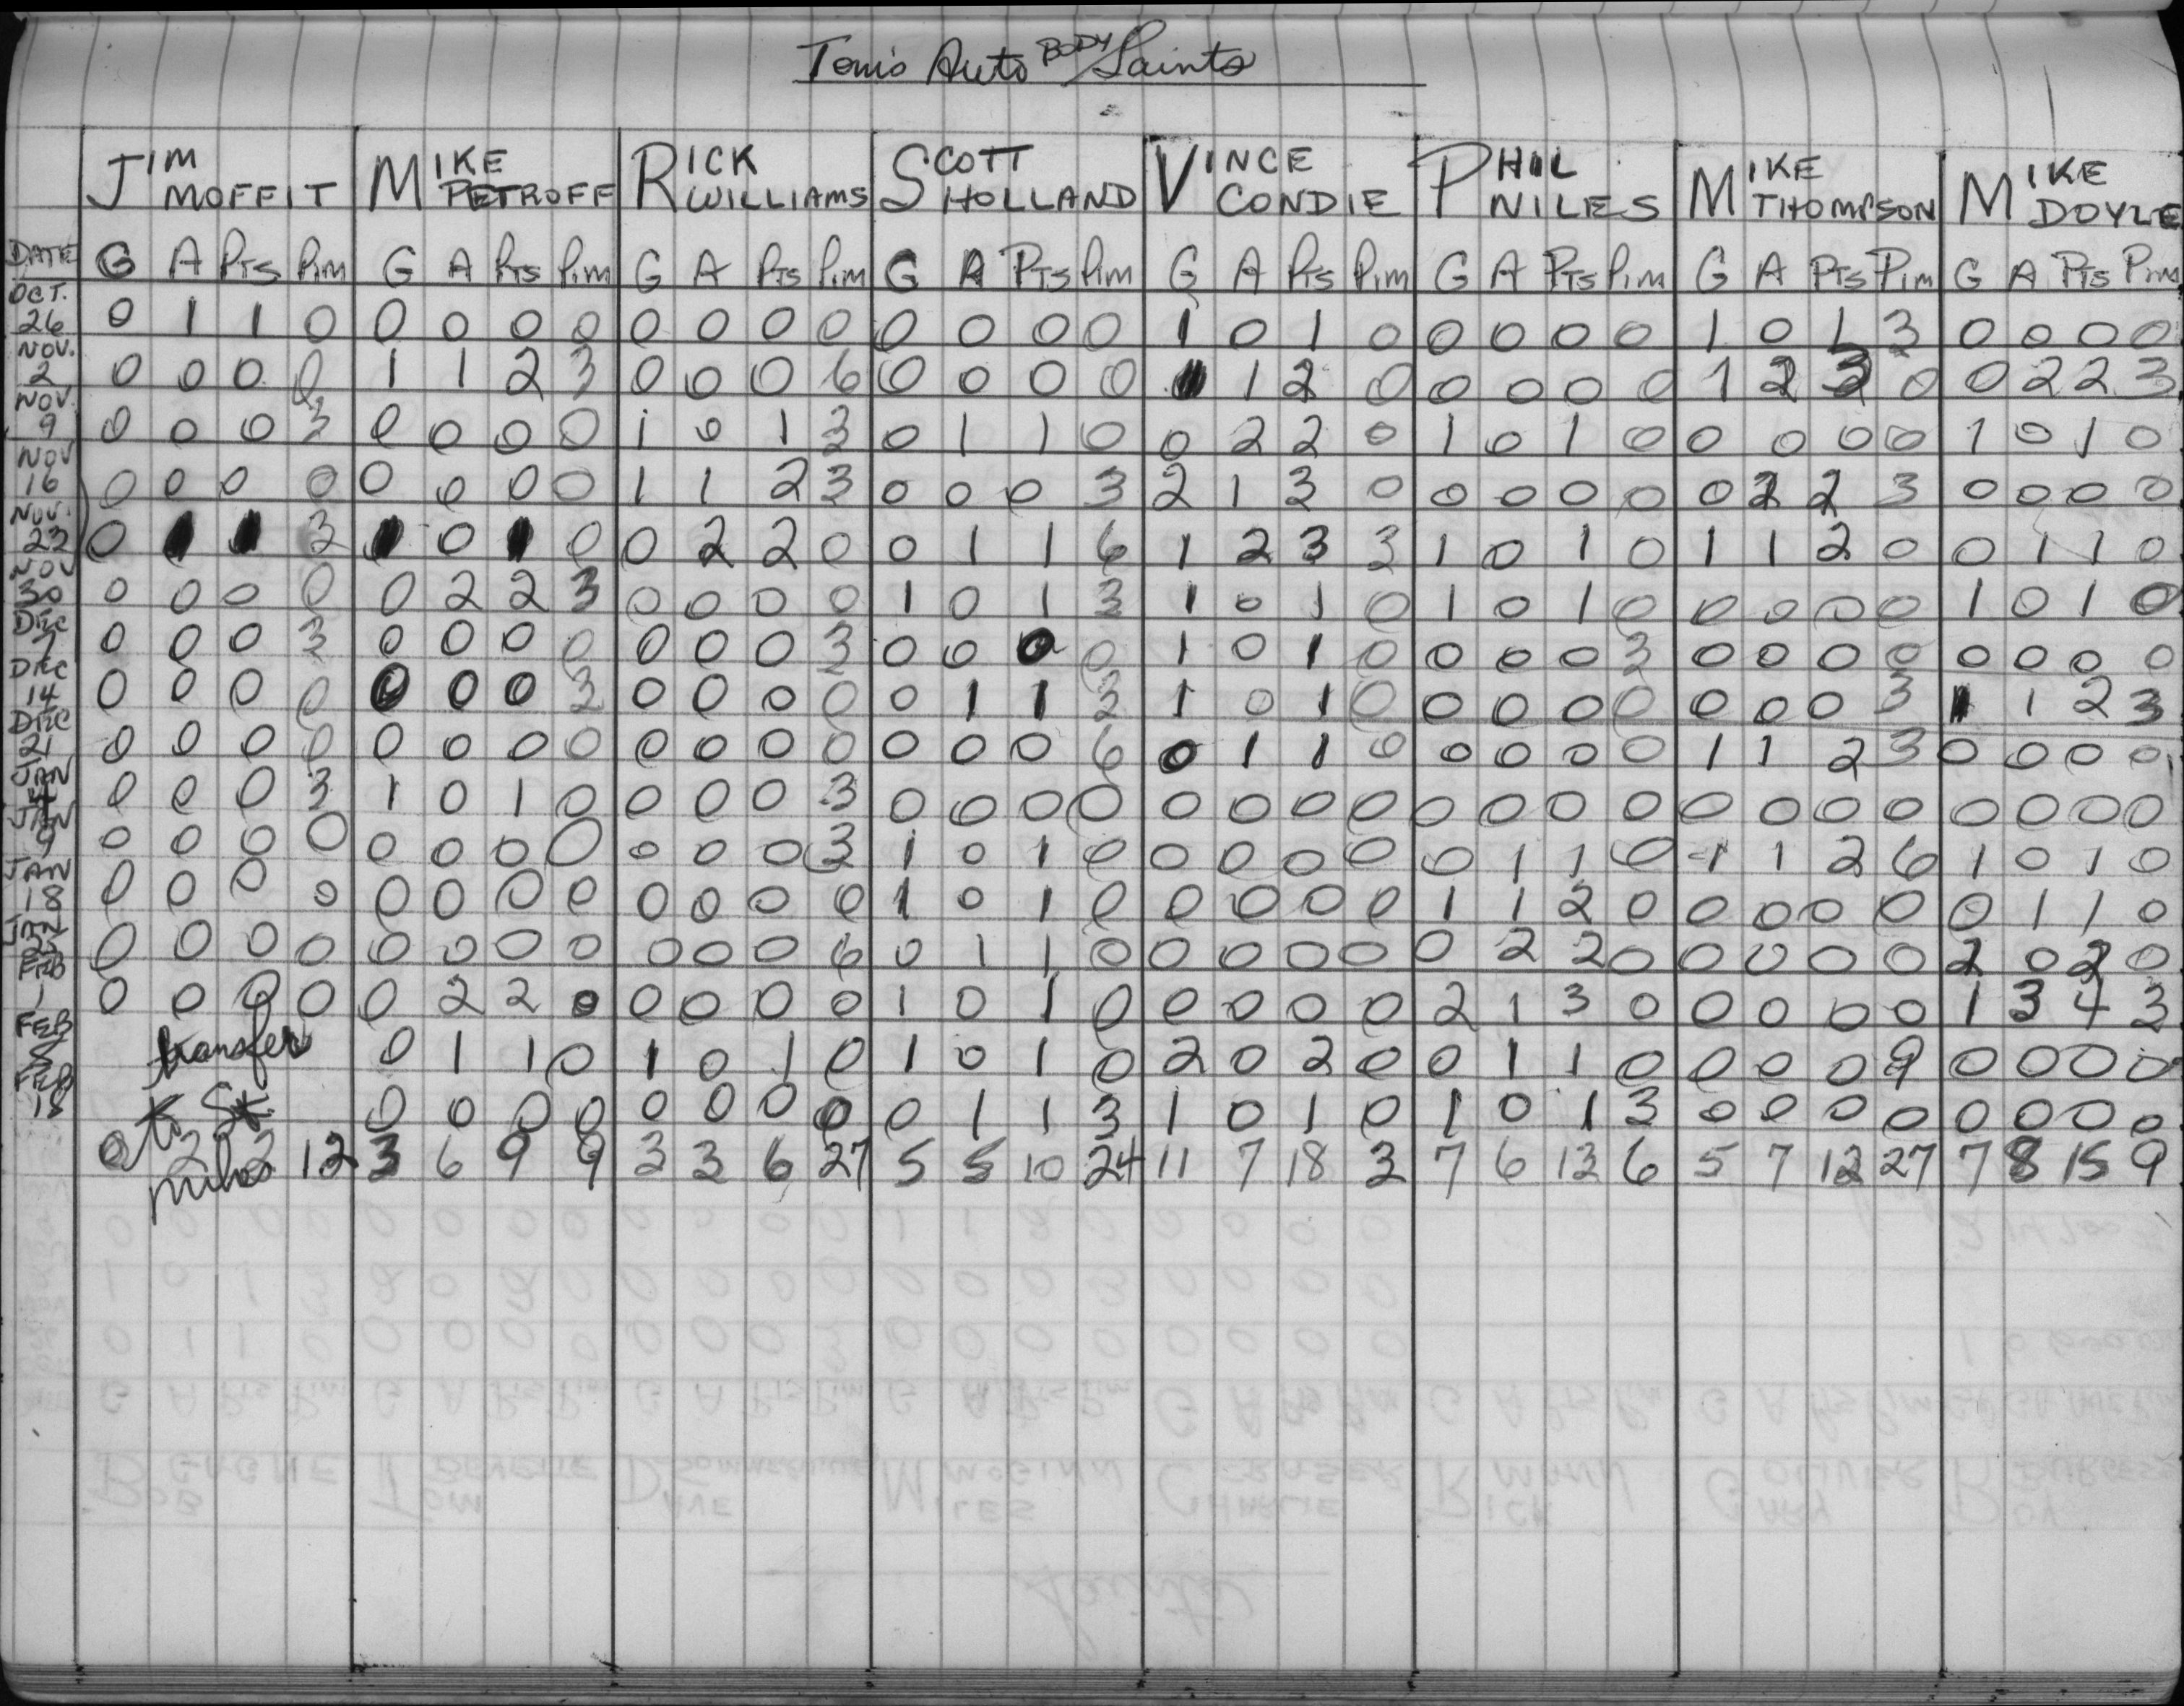 Tom's Auto BODY Saints
JIM MOFFIT MIKE PETROFF RICK WILLIAMS SCOTT HOLLAND VINCE CONDIE PHIL NILES MIKE THOMPSON MIKE DOYLE
DATE G A Pts Pim G A Pts Pim G A Pts Pim G A Pts Pim G A Pts Pim G A Pts Pim G A Pts Pim G A Pts Pim
OCT. 26 0 1 1 0 0 0 0 0 0 0 0 0 0 0 0 0 1 0 1 0 0 0 0 0 1 0 1 3 0 0 0 0
NOV. 2 0 0 0 0 1 1 2 3 0 0 0 6 0 0 0 0 1 1 2 0 0 0 0 0 1 2 3 0 0 2 2 3
NOV. 9 0 0 0 3 0 0 0 0 1 0 1 3 0 1 1 0 0 2 2 0 1 0 1 0 0 0 0 0 1 0 1 0
NOV 16 0 0 0 0 0 0 0 0 1 1 2 3 0 0 0 3 2 1 3 0 0 0 0 0 0 2 2 3 0 0 0 0
NOV. 23 0 1 1 3 1 0 1 0 0 2 2 0 0 1 1 6 1 2 3 3 1 0 1 0 1 1 2 0 0 1 1 0
NOV 30 0 0 0 0 0 2 2 3 0 0 0 0 1 0 1 3 1 0 1 0 1 0 1 0 0 0 0 0 1 0 1 0
DEC 7 0 0 0 3 0 0 0 0 0 0 0 3 0 0 0 0 1 0 1 0 0 0 0 3 0 0 0 0 0 0 0 0
DEC 14 0 0 0 0 0 0 0 3 0 0 0 0 0 1 1 3 1 0 1 0 0 0 0 0 0 0 0 3 1 1 2 3
DEC 21 0 0 0 0 0 0 0 0 0 0 0 0 0 0 0 6 0 1 1 0 0 0 0 0 1 1 2 3 0 0 0 0
JAN 4 0 0 0 3 1 0 1 0 0 0 0 3 0 0 0 0 0 0 0 0 0 0 0 0 0 0 0 0 0 0 0 0
JAN 9 0 0 0 0 0 0 0 0 0 0 0 3 1 0 1 0 0 0 0 0 0 1 1 0 1 1 2 6 1 0 1 0
JAN 18 0 0 0 0 0 0 0 0 0 0 0 0 1 0 1 0 0 0 0 0 1 1 2 0 0 0 0 0 0 1 1 0
JAN 0 0 0 0 0 0 0 0 0 0 0 6 0 1 1 0 0 0 0 0 0 2 2 0 0 0 0 0 2 0 2 0
FEB 1 0 0 0 0 0 2 2 0 0 0 0 0 1 0 1 0 0 0 0 0 2 1 3 0 0 0 0 0 1 3 4 3
FEB 8 transfer 0 1 1 0 1 0 1 0 1 0 1 0 2 0 2 0 0 1 1 0 0 0 0 9 0 0 0 0
FEB 18 to St. 0 0 0 0 0 0 0 0 0 1 1 3 1 0 1 0 1 0 1 3 0 0 0 0 0 0 0 0
0 2 2 12 3 6 9 9 3 3 6 27 5 5 10 24 11 7 18 3 7 6 13 6 5 7 12 27 7 8 15 9